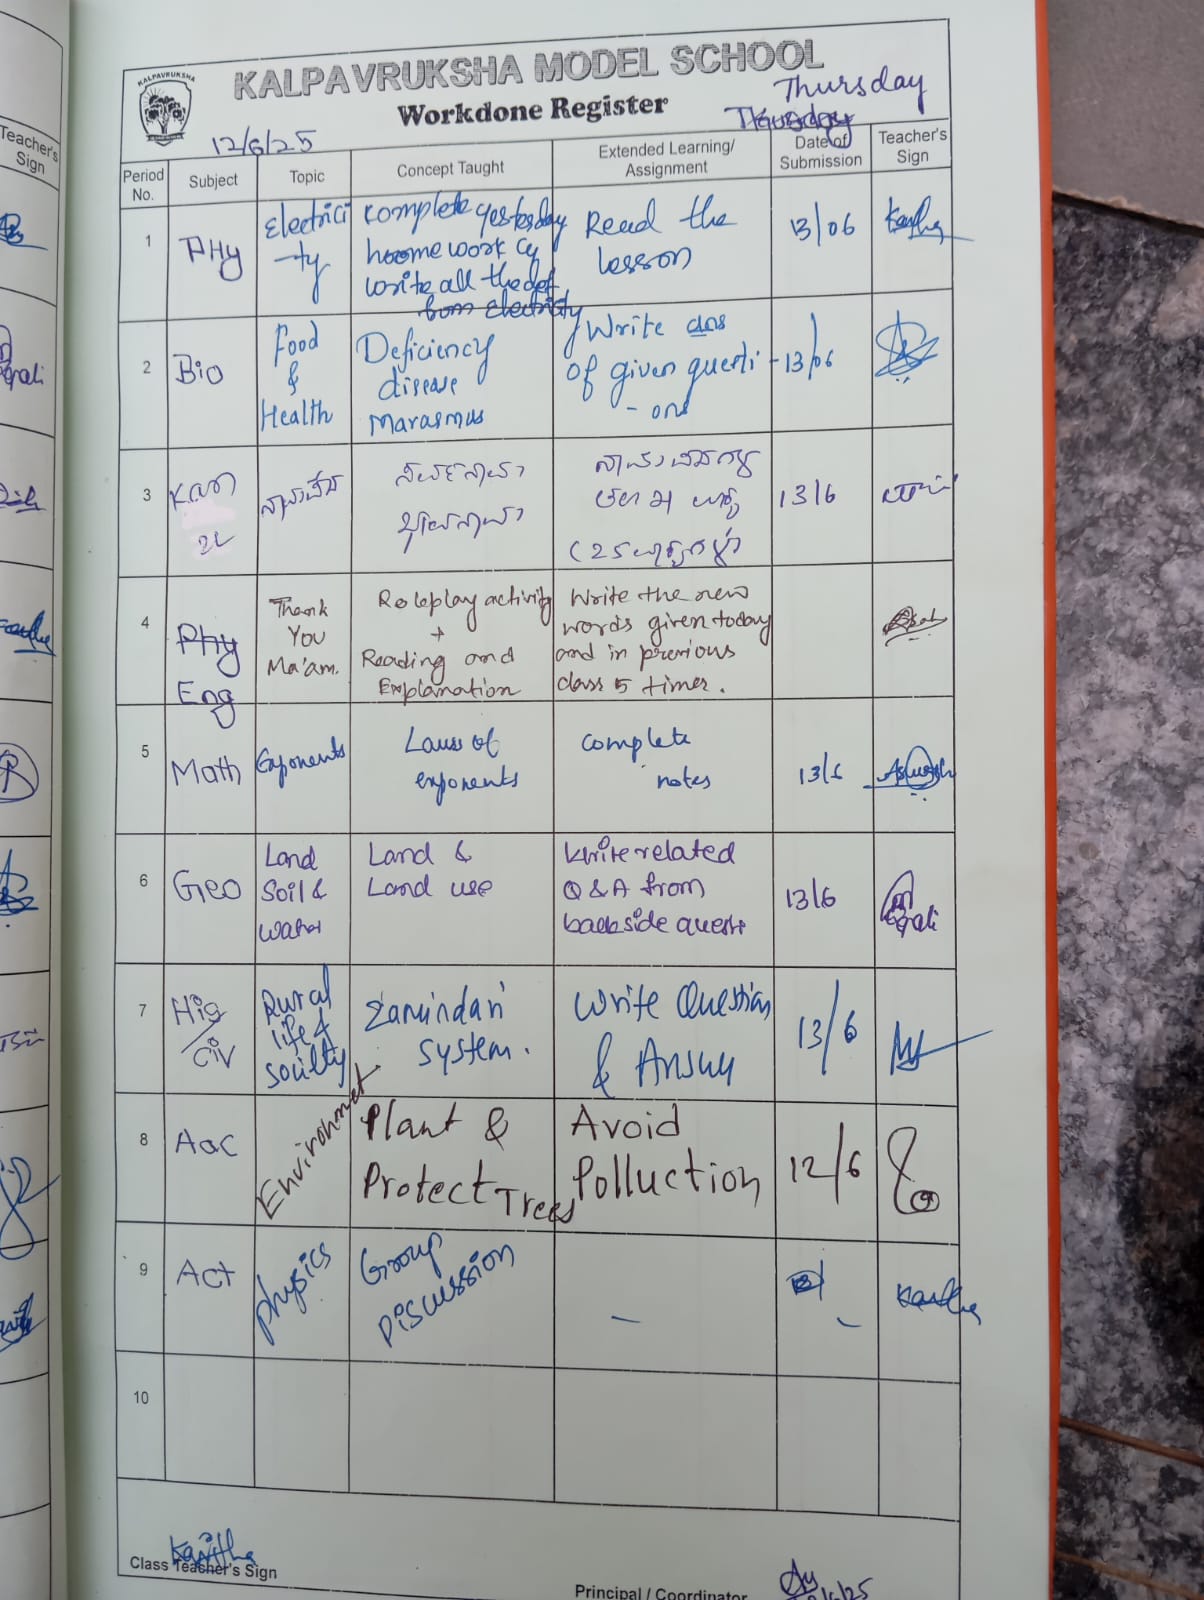 KALPAVRUKSHA
KALPAVRUKSHA MODEL SCHOOL
Workdone Register
Thursday
Thursday
12/6/25
Period No.
Subject
Topic
Concept Taught
Extended Learning/ Assignment
Date of Submission
Teacher's Sign
1
PHy
Electrici
-ty
complete yesterday
home work
write all the def
from electricity
Read the
lesson
13/06
2
Bio
Food
&
Health
Deficiency
disease
Marasmus
Write ans
of given questi
- ons
13/06
3
2L
13/6
4
Phy
Eng
Thank
You
Ma'am.
Roleplay activity
+
Reading and
Explanation
Write the new
words given today
and in previous
class 5 times.
5
Math
Exponents
Laws of
exponents
complete
notes
13/6
6
Geo
Land
Soil &
water
Land &
Land use
Write related
Q & A from
backside questi
13/6
7
His/
Civ
Rural
life &
society
Zamindari
system.
Write Question
& Answer
13/6
8
Aac
Environmet
Plant &
Protect Trees
Avoid
Polluction
12/6
9
Act
Physics
Group
Discussion
-
-
Kavitha
10
Kavitha
Class Teacher's Sign
Principal / Coordinator
Teacher's
Sign